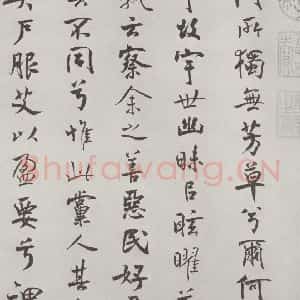 所獨無芳草兮爾何
故宇世幽昧㠯眩曜
孰云察余之善惡民好
其不同兮惟此黨人其
戶服艾以盈要兮謂
Shufawang.CN